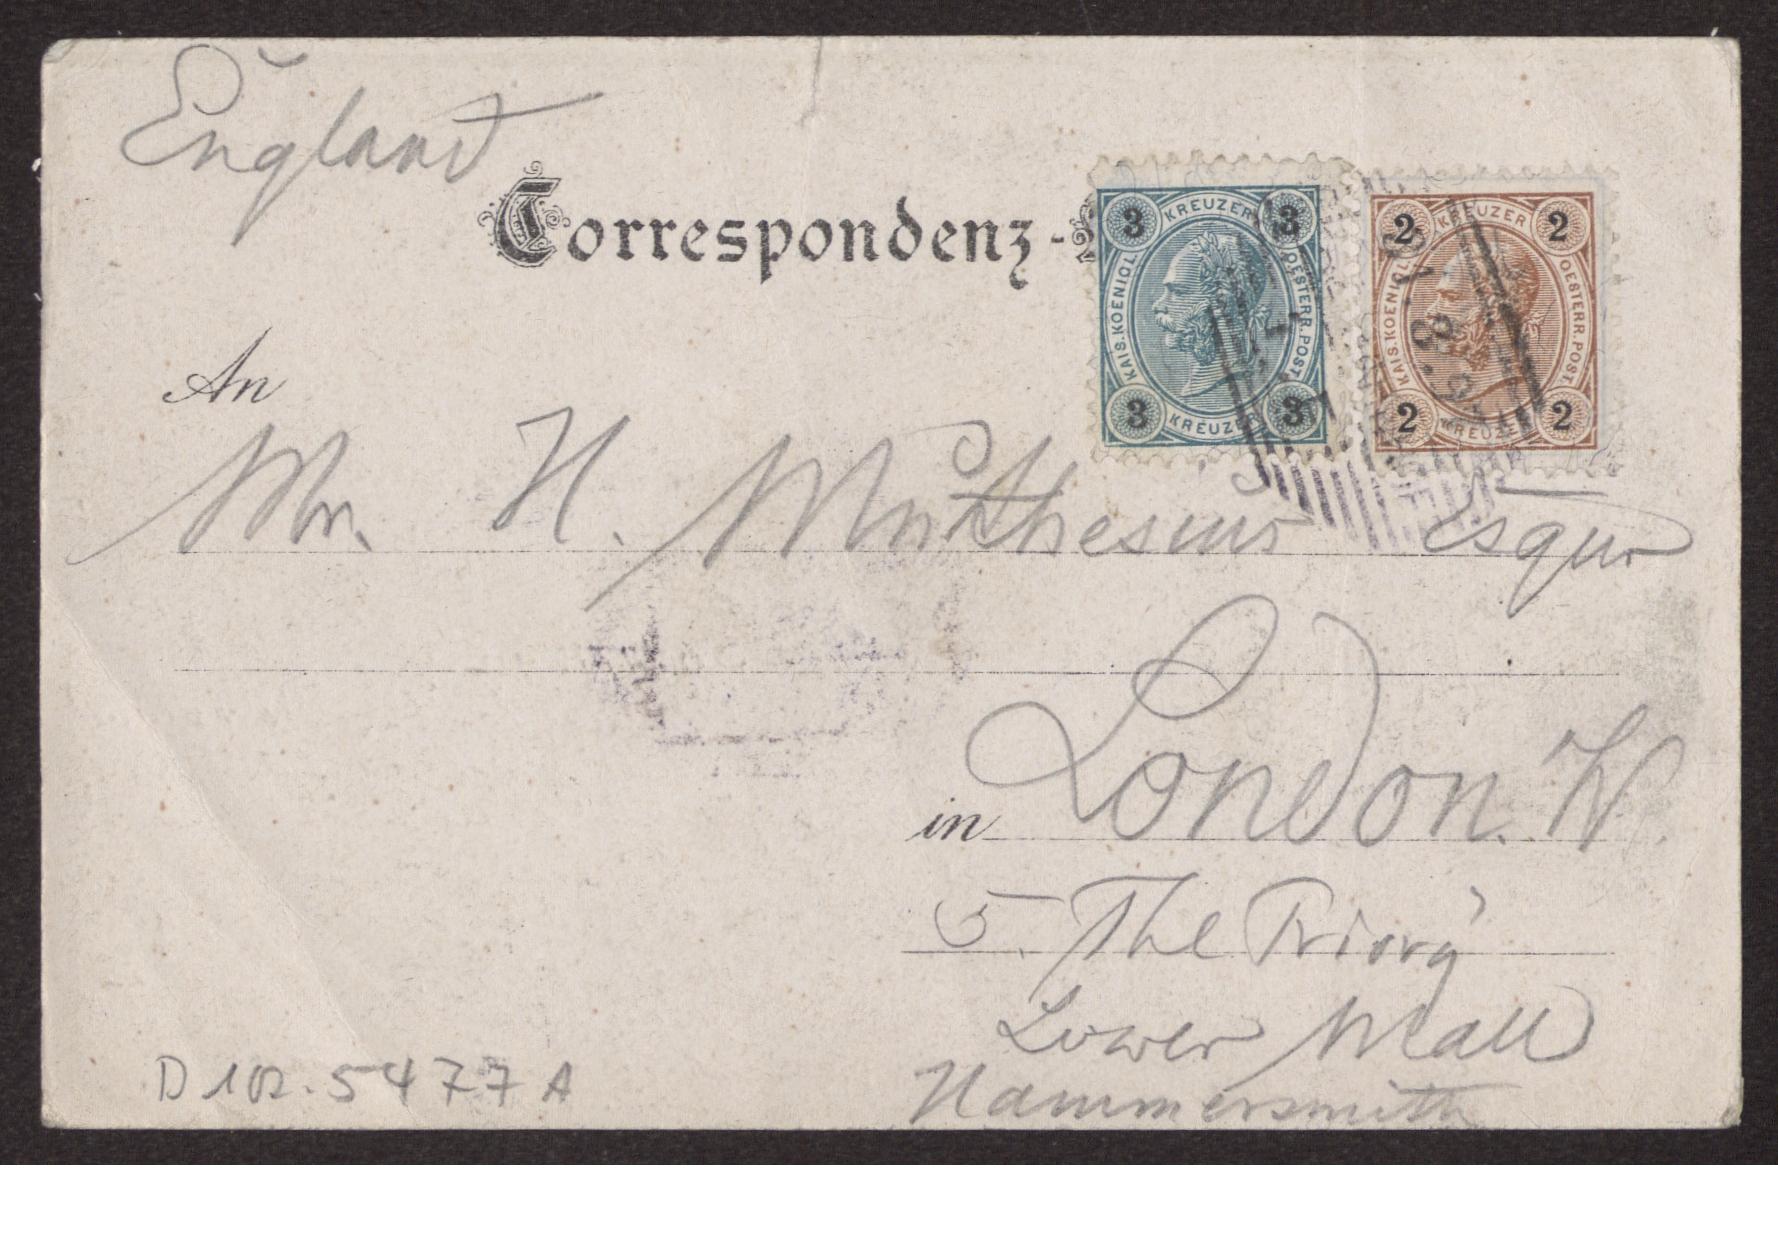 England
Correspondenz-
3 KREUZER 3
KAIS. KOENIGL. OESTERR. POST
3 KREUZER 3
2 KREUZER 2
KAIS. KOENIGL. OESTERR. POST
2 KREUZER 2
An
Mr. H. Muthesius Esqur
in London. W.
5. The Priory
Lower Mall
Hammersmith
D 102. 5477 A